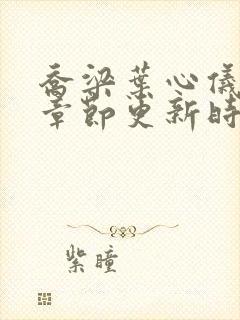 乔梁叶心仪
章节更新时
紫瞳